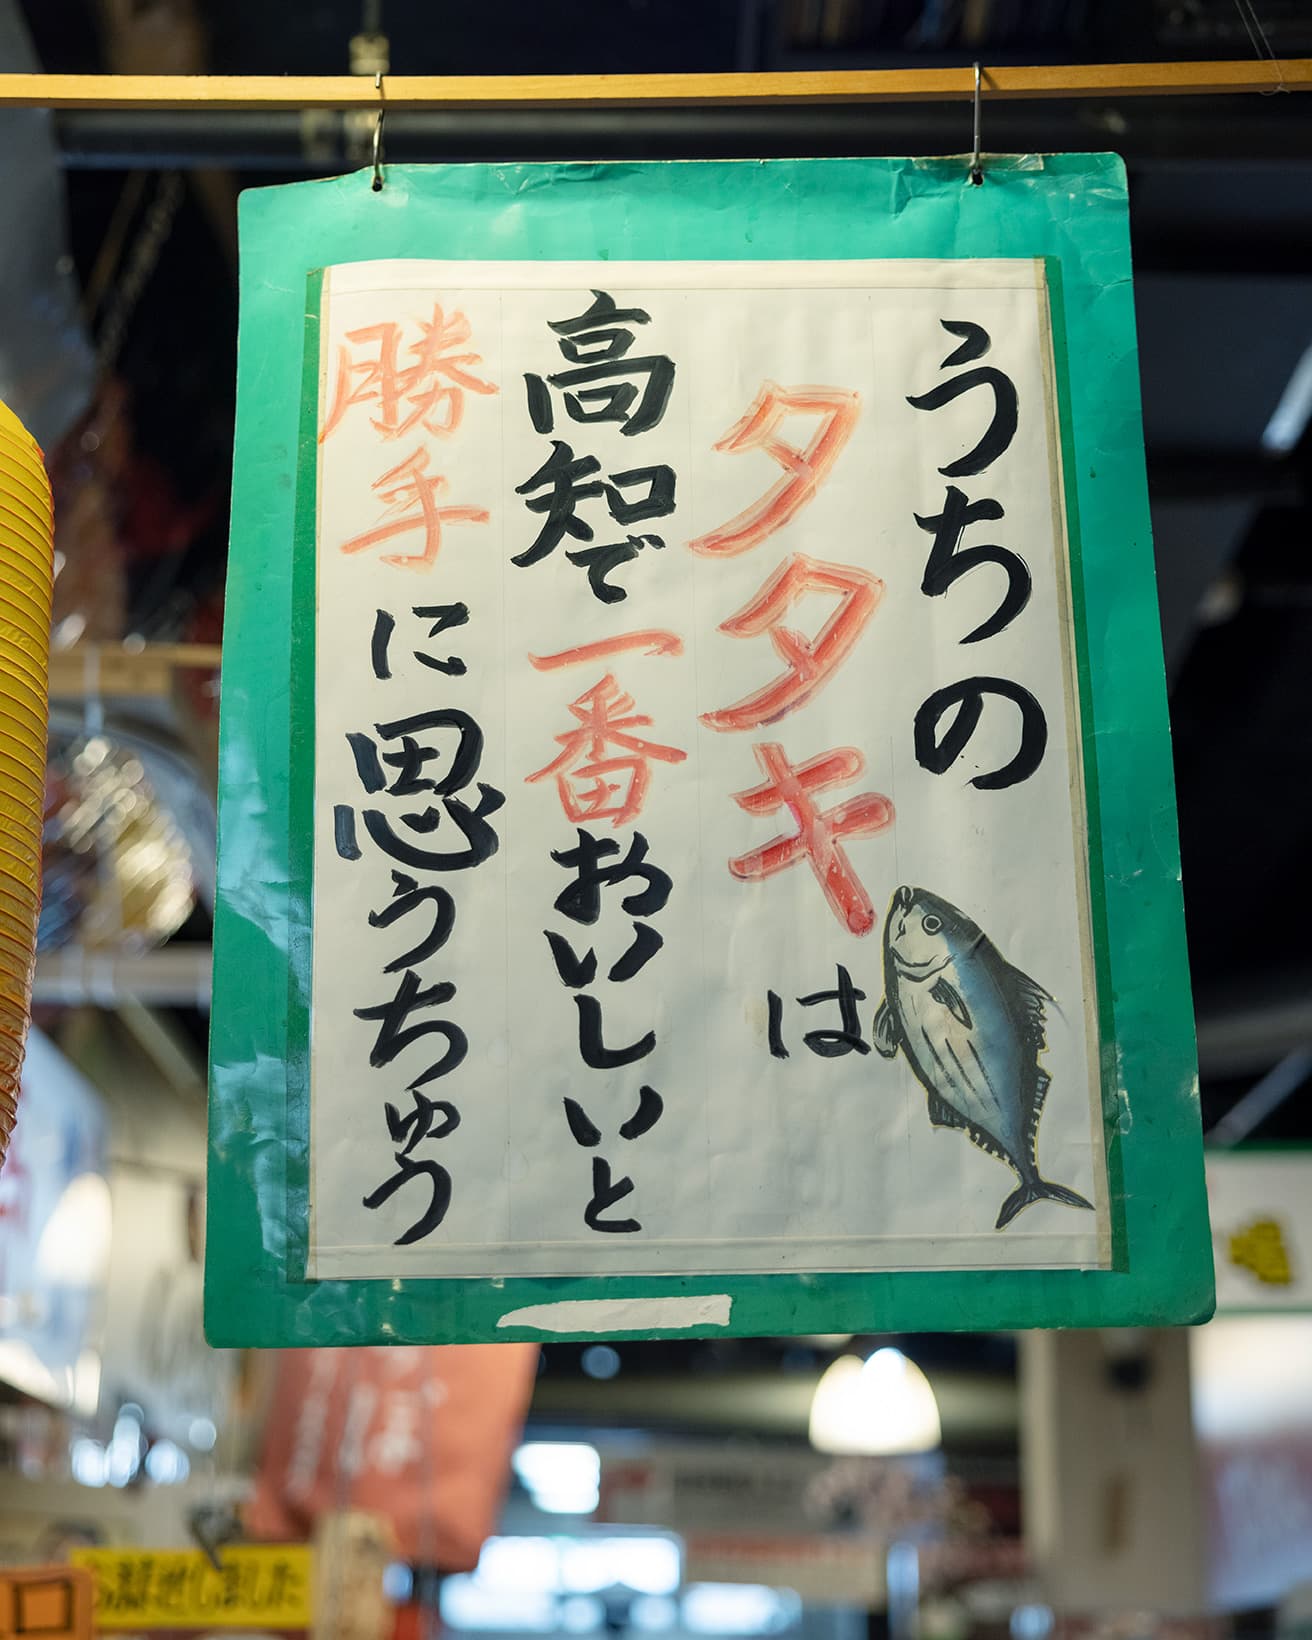 うちの
タタキは
高知で一番おいしいと
勝手に思うちゅう